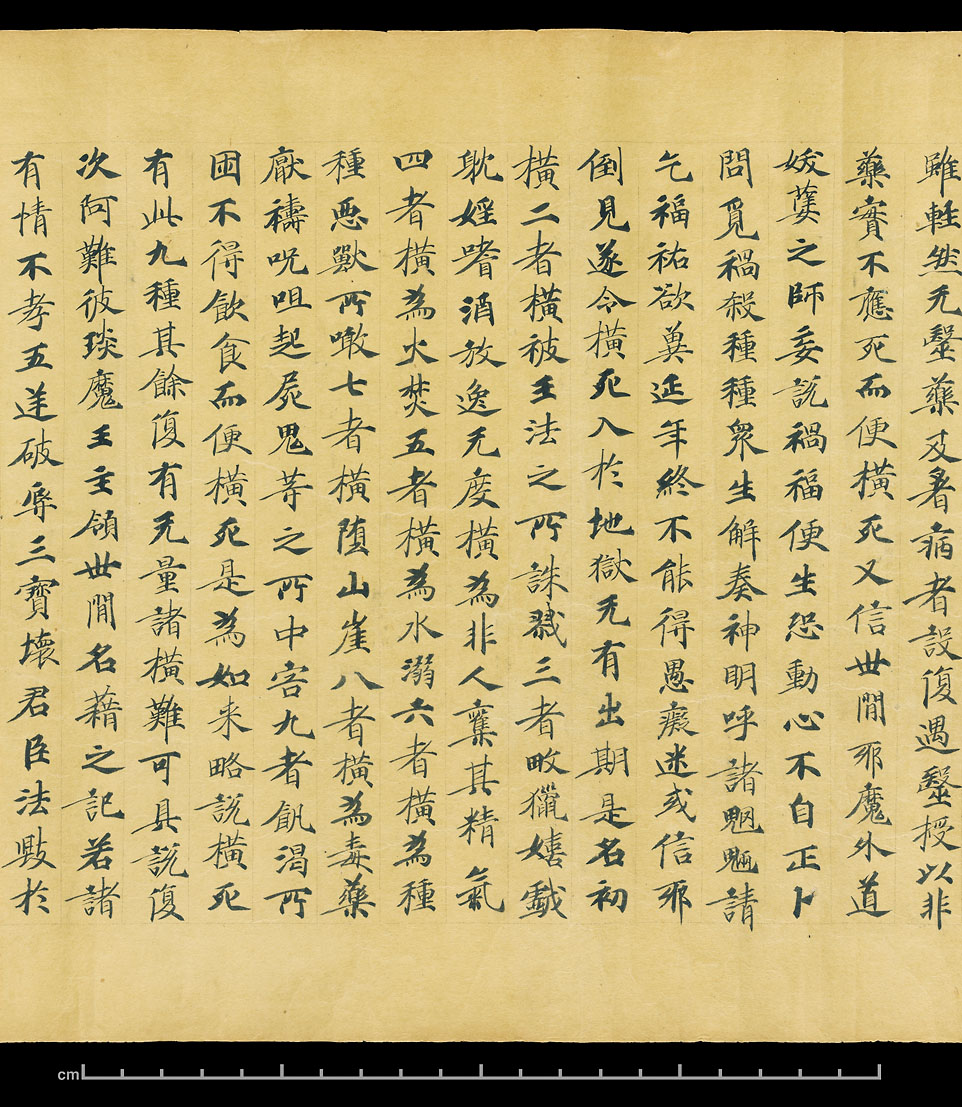 雖輕然无毉藥及看病者設復遇毉授以非
藥實不應死而便橫死又信世閒邪魔外道
妖孽之師妄說禍福便生恐動心不自正卜
問覓禍殺種種衆生解奏神明呼諸魍魎請
乞福祐欲冀延年終不能得愚癡迷或信邪
倒見遂令橫死入於地獄无有出期是名初
橫二者橫被王法之所誅戮三者畋獵嬉戲
耽婬嗜酒放逸无度橫為非人奪其精氣
四者橫為火焚五者橫為水溺六者橫為種
種惡獸所噉七者橫墮山崖八者橫為毒藥
厭禱呪咀起屍鬼等之所中害九者飢渴所
困不得飲食而便橫死是為如来略說橫死
有此九種其餘復有无量諸橫難可具說復
次阿難彼琰魔王主領世閒名藉之記若諸
有情不孝五逆破辱三寶壞君臣法毀於
cm